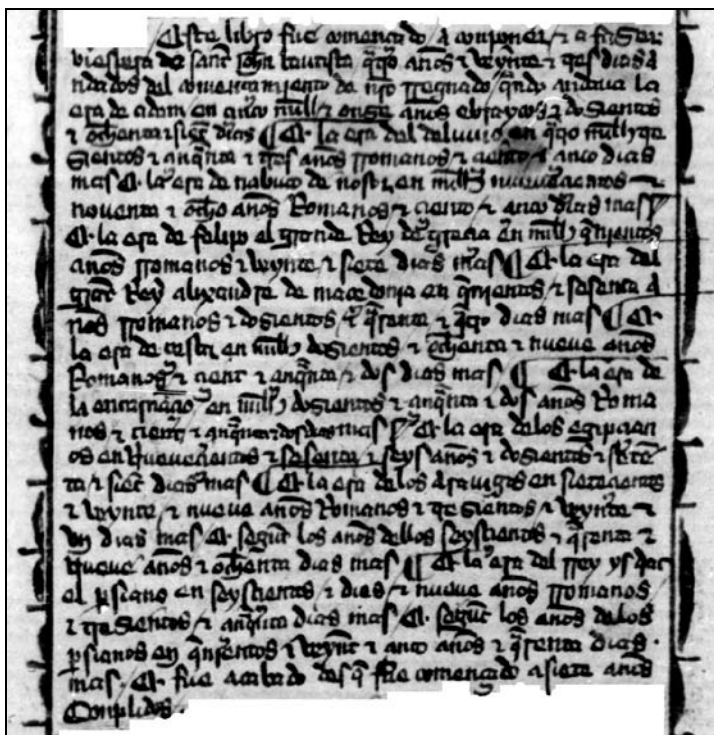 Este libro fue començado a conponer & a fazer
viespera de sant Johan bautista q̃tro años & veynte & tres dias a
ndados del comiençamiento de nro rregnado q̃ndo andaua la
era de adam en çinco mill & onze años ebraycos & dozientos
& ochenta & siete dias ¶ E la era del deluuio en q̃tro mill & tre
zientos & çinq̃nta & tres años rromanos & ciento & çinco dias
mas E la era de nabuco de nosor en mill & nueueçientos
nouenta & ocho años Romanos & ciento & çinco dias mas ¶
E la era de felipo el grande Rey de greçia en mill & q̃nientos
años rromanos & veynte & siete dias mas ¶ E la era del
grant Rey alixandre de maçedonia en q̃nientos & sesenta a
ños rromanos & dozientos & q̃renta & q̃tro dias mas ¶ E
la era de çesar en mill & dozientos & ochenta & nueue años
Romanos & cient & çinq̃nta & dos dias mas ¶ E la era de
la encarnaçio en mill & dozientos & çinq̃nta & dos años Roma
nos & cient & çinq̃nta & dos dias mas ¶ E la era delos egipçian
os en nueueçientos & sesenta & seys años & dozientos & seten
ta & siete dias mas ¶ E la era delos arauigos en seteçientos
& veynte & nueue años Romanos & trezientos & veynte &
vn dias mas E segunt los años dellos seysçientos & q̃renta &
nueue años & ochenta dias mas ¶ E la era del rrey ysdar
el persiano en seysçientos & dies & nueue años rromanos
& trezientos & çinq̃nta dias mas E segunt los años delos
persianos en q̃nientos & veynt & çinco años & q̃renta dias
mas E fue acabado des q̃ fue començado a siete años
Conplidos.